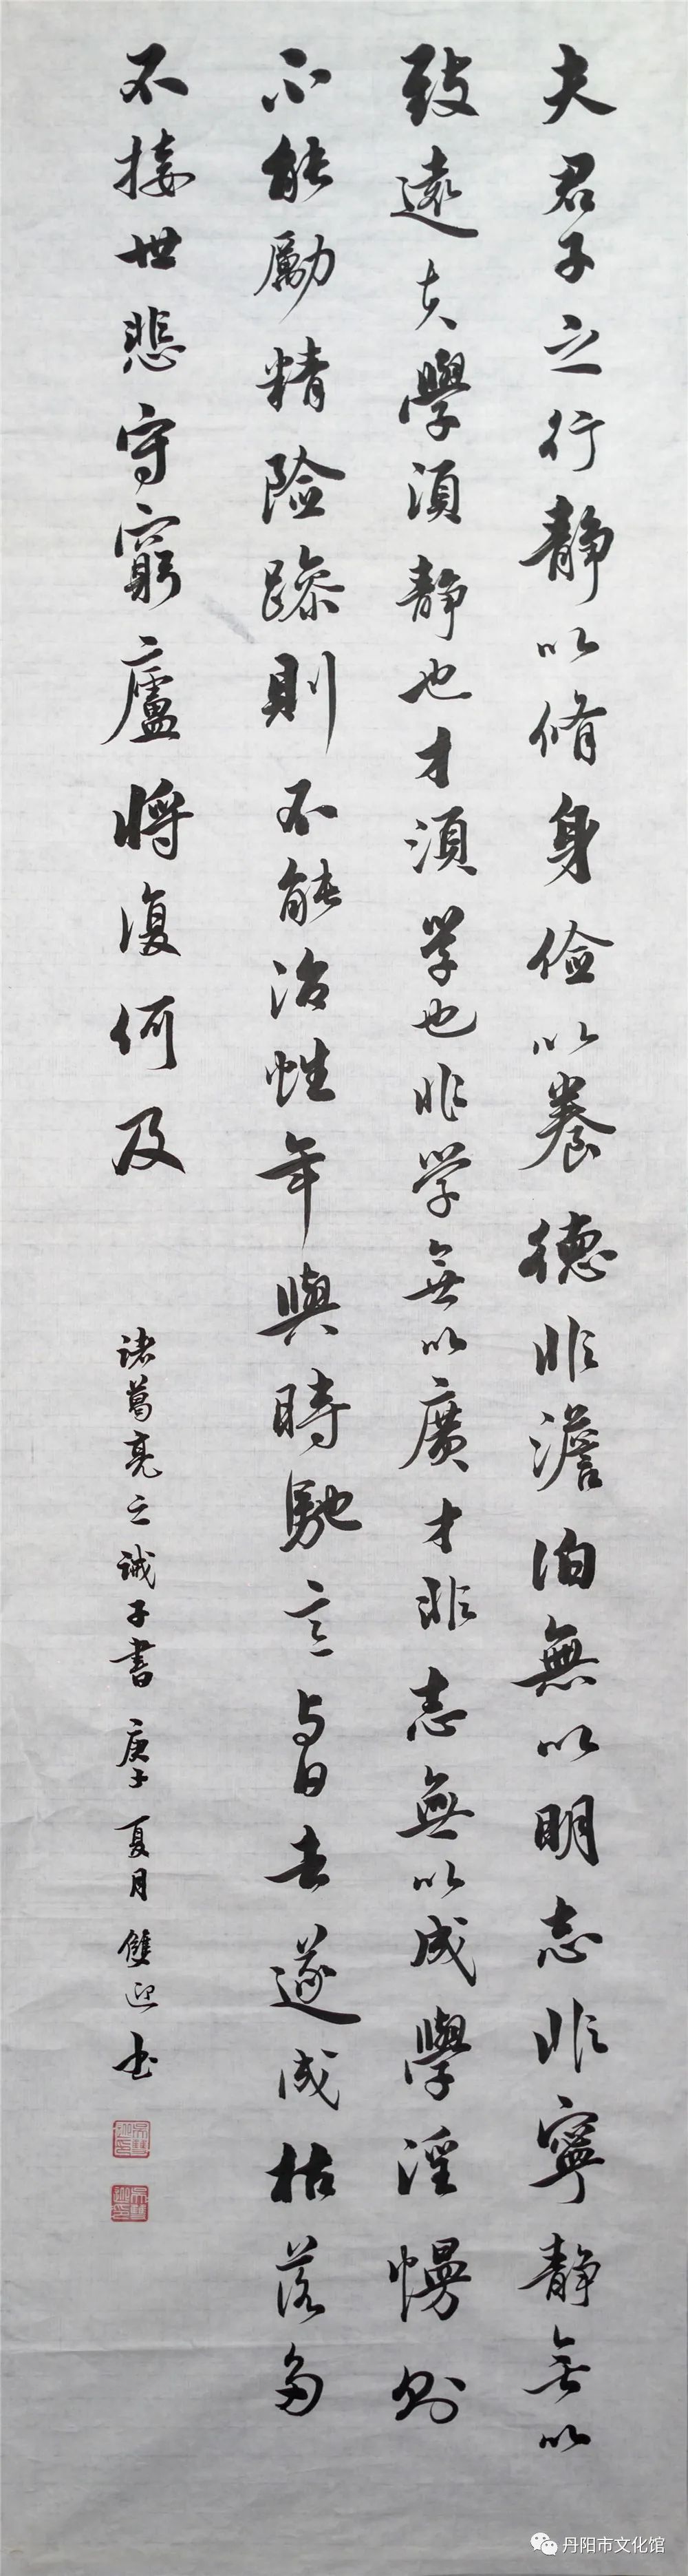 夫君子之行靜以脩身儉以養德非澹泊無以明志非寧靜無以
致遠夫學須靜也才須學也非学無以廣才非志無以成學淫慢則
不能勵精險躁則不能治性年與時馳意与日去遂成枯落多
不接世悲守窮廬將復何及
諸葛亮之誡子書 庚子夏月雙迎书
丹阳市文化馆